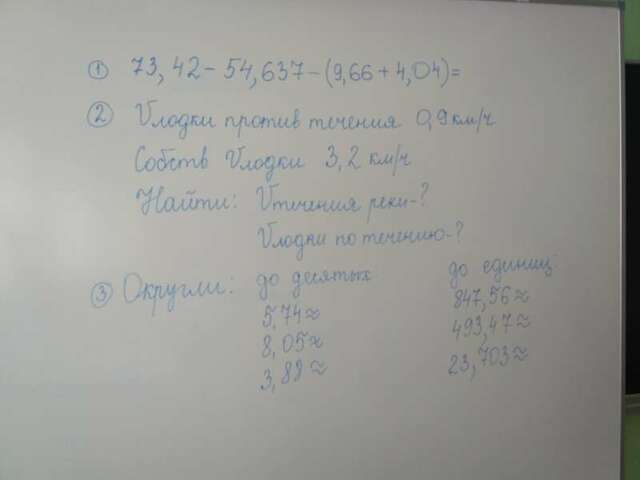 ① 73,42 - 54,637 - (9,66 + 4,04) =
② Vлодки против течения 0,9 км/ч
Собств Vлодки 3,2 км/ч
Найти: Vтечения реки-?
Vлодки по течению-?
③ Округли: до десятых до единиц:
5,74≈ 847,56≈
8,05≈ 493,47≈
3,89≈ 23,703≈